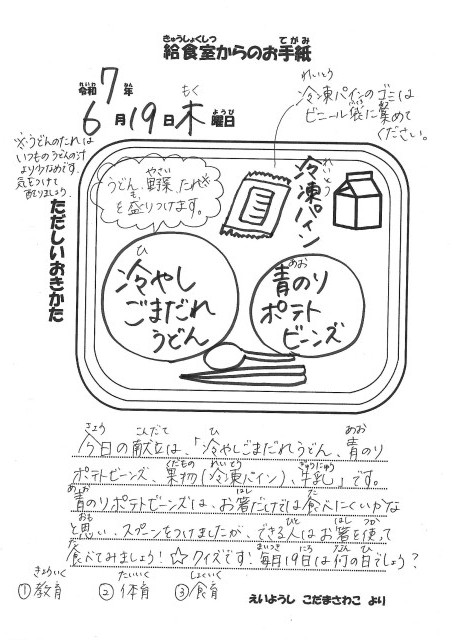 給食室からのお手紙
きゅうしょくしつ てがみ
令和7年
れいわ ねん
6月19日木曜日
もく ようび
れいとう
冷凍パインのゴミは
ビニール袋に集めて
ください。
※うどんのたれは
いつものうどんの汁
より少なめです。
気をつけて
配りましょう。
ただしいおきかた
やさい
うどん、野菜、たれ※
も
を盛りつけます。
れいとう
冷凍パイン
ひ
冷やし
ごまだれ
うどん
あお
青のり
ポテト
ビーンズ
きょう こんだて ひ あお
今日の献立は、「冷やしごまだれうどん、青のり
くだもの れいとう ぎゅうにゅう
ポテトビーンズ、果物(冷凍パイン)、牛乳」です。
あお はし た
青のりポテトビーンズは、お箸だけでは食べにくいかな
おも ひと はし つか
と思い、スプーンをつけましたが、できる人はお箸を使って
た まいつき にち なん ひ
食べてみましょう!☆クイズです!毎月19日は何の日でしょう?
きょういく たいいく しょくいく
①教育 ②体育 ③食育
えいようし こだまさわこ より